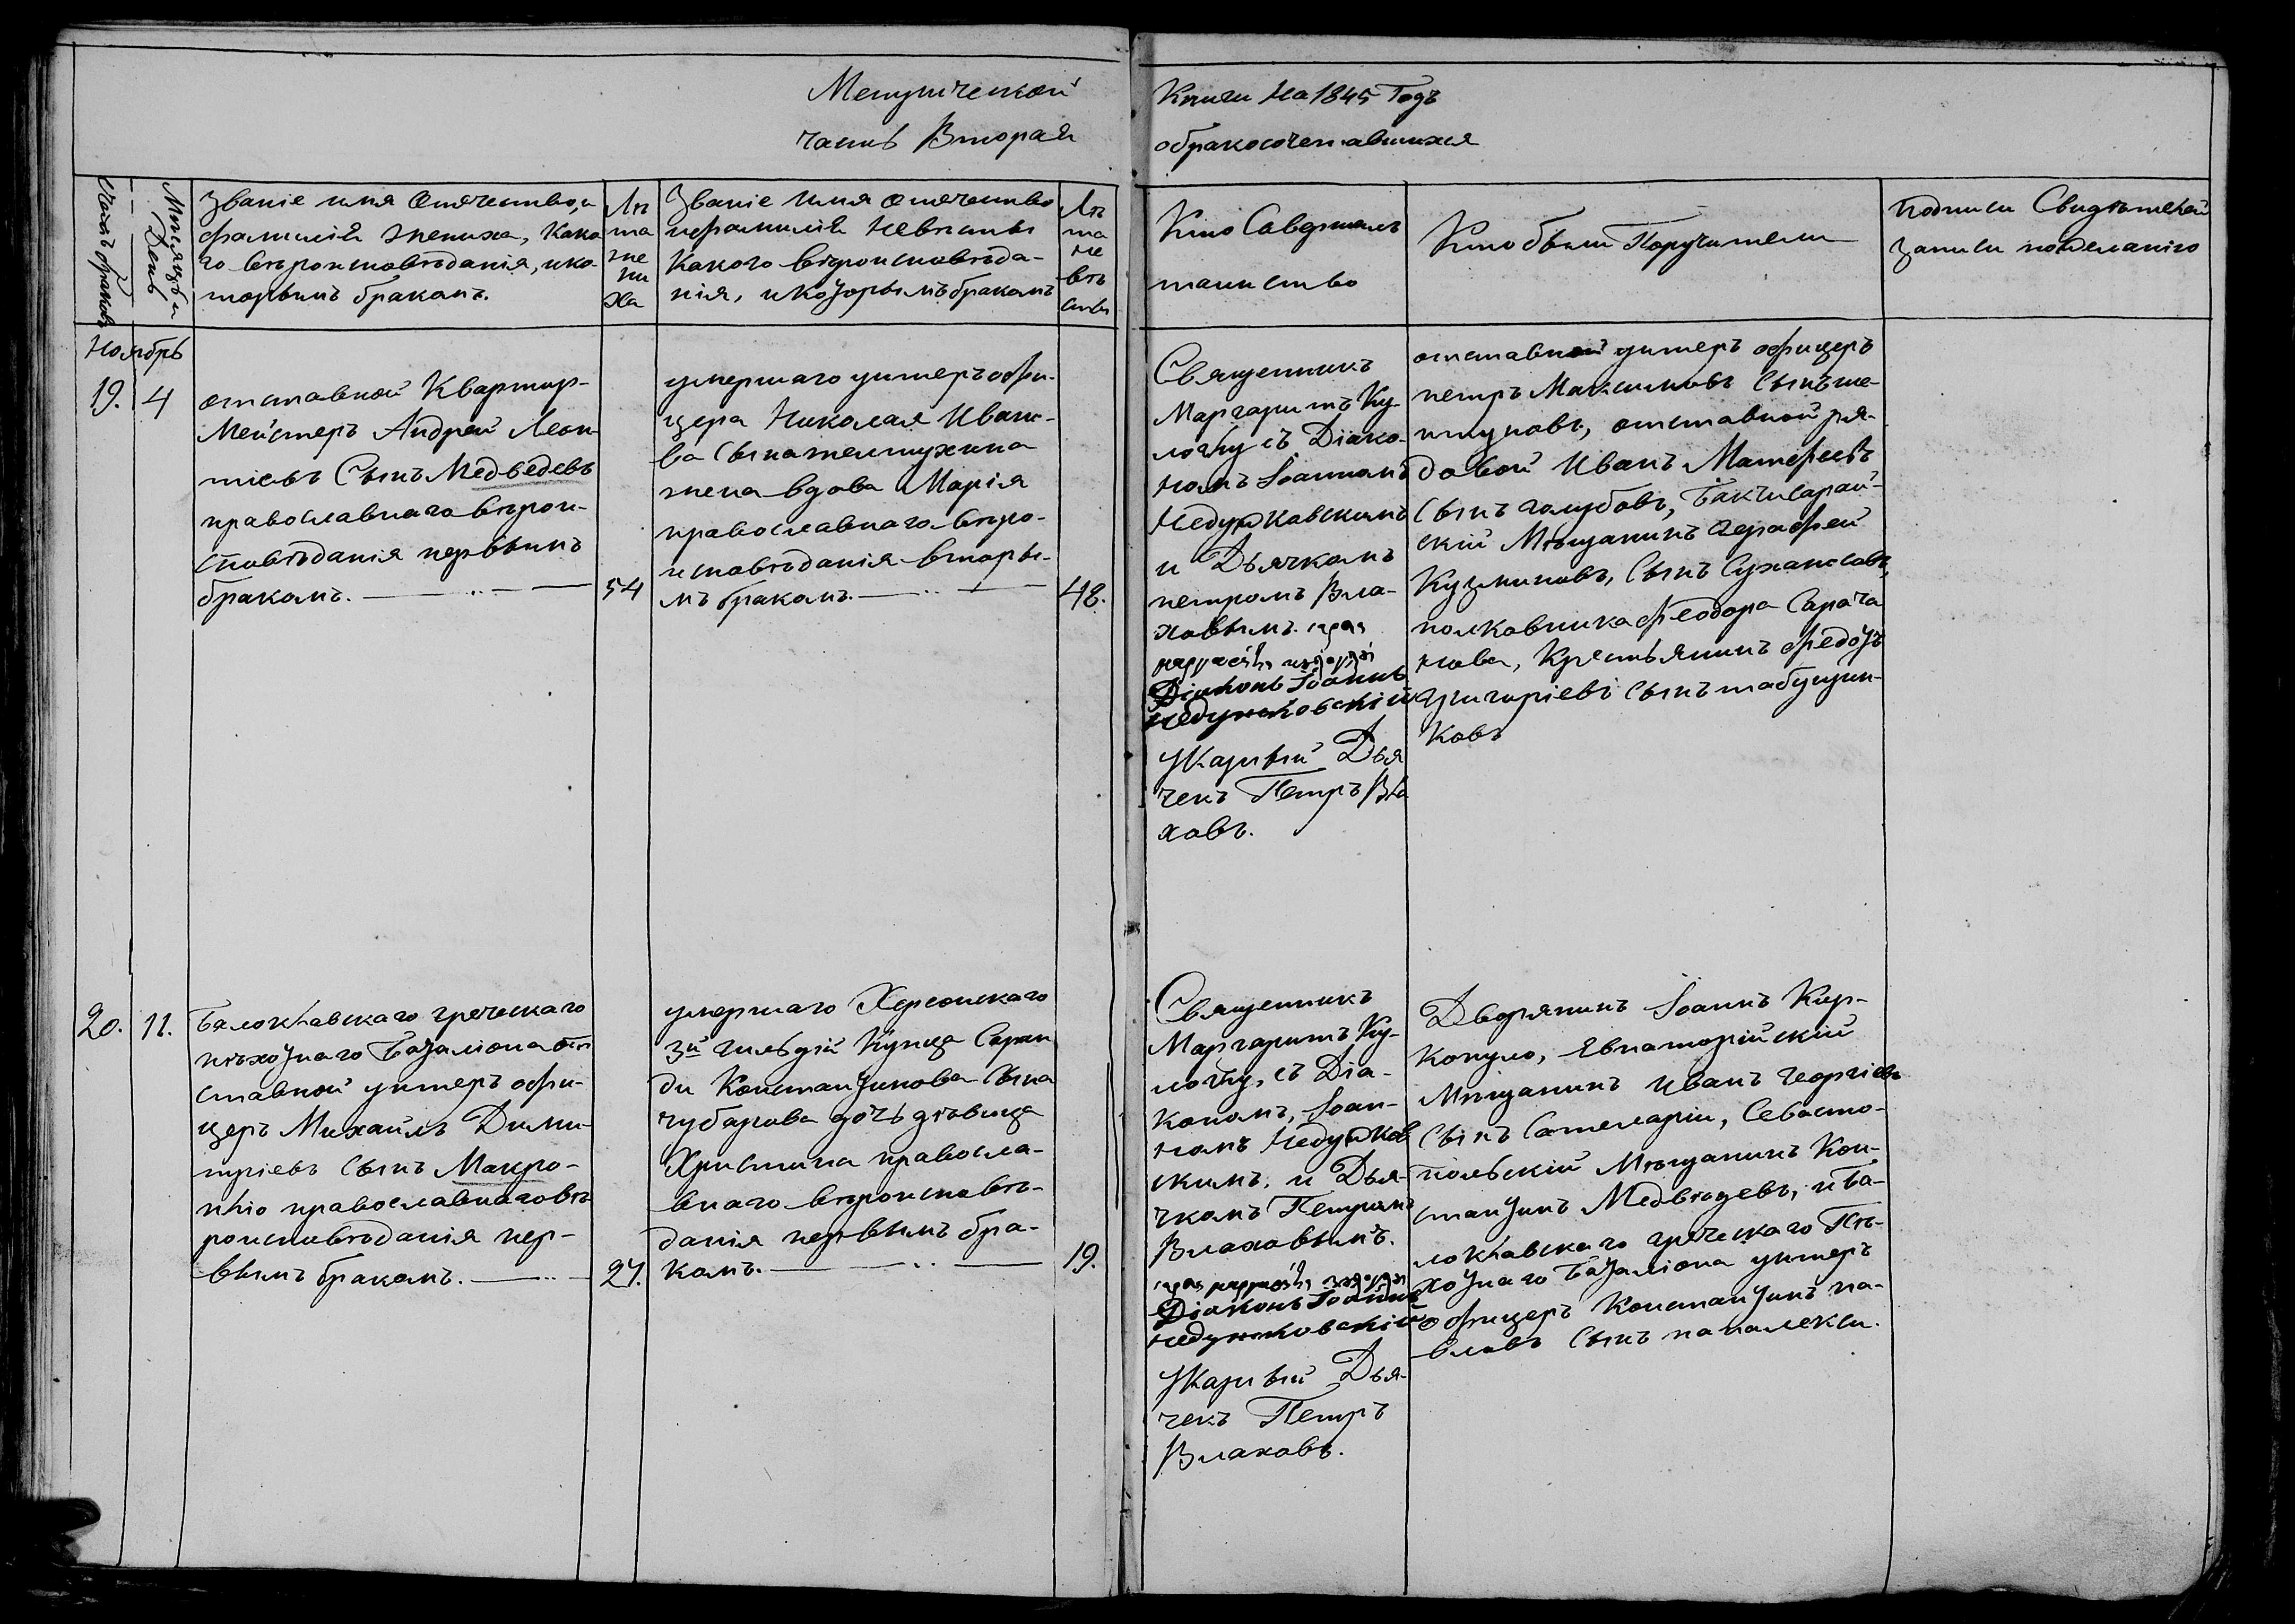 Метрической
часть Вторая
Книги На 1845 Годъ
обракосочетавшихся
Счетъ браковъ
Мѣсяцъ и
День
Званіе имя Отечество, и
фамилія жениха, Како
го вѣроисповѣданія, и ко-
торымъ бракомъ.
Лѣ
та
же
ни
ха
Званіе Имя отечество
и фамилія Невѣсты
Какого вѣроисповѣда-
нія, и которымъ бракомъ
Лѣ
та
не
вѣ
сты
Кто Совершалъ
таинство
Кто были Поручители
Подписи Свидѣтелей
записи по желанію
Ноябрь
19. 4
отставной Квартир-
Мейстеръ Андрей Леон-
тіевъ Сынъ Медведевъ
православнаго вѣрои-
споведанія первымъ
бракомъ.
54
умершаго унтеръ офи-
цера Николая Ивано-
ва Сына желтухина
жена вдова Марія
православнаго вѣро-
исповѣданія вторы-
мъ бракомъ.
48.
Священникъ
Маргаритъ Ку-
лочку съ Діако-
номъ Іоанномъ
Недужковскимъ
и Дьячкомъ
петромъ Вла-
ховымъ.
Діаконъ Іоаннъ
Недужковскій
Жаривій Дья
чекъ Петръ Вла
ховъ.
отставной унтеръ офицеръ
петръ Максимовъ Сынъ ше-
птуновъ, отставной ря-
довой Иванъ Матфеевъ
Сынъ голубовъ, Бакчисарай-
скій Мѣщанинъ Ферафей
Кузминовъ, Сынъ Сухаиловъ,
полковника феодора Сарача
нова, Крестьянинъ федотъ
григоріевъ Сынъ табунщи-
ковъ
20. 11.
Балоклавскаго греческаго
пѣхотнаго Баталіона от
ставной унтеръ офи-
церъ Михаилъ Дими-
тріевъ Сынъ Макро-
пліо православнаго вѣ
роисповѣданія пер-
вымъ бракомъ.
27.
умершаго Херсонскаго
3й гильдій Купца Саран
ди Константинова Сына
чубарова дочь дѣвица
Христина правосла-
внаго вѣроисповѣ-
данія первымъ бра-
комъ.
19.
Священникъ
Маргаритъ Ку-
лочку, съ Діа-
кономъ, Іоан-
номъ Недужков
скимъ, и Дья-
чкомъ Петромъ
Влаховымъ.
Діаконъ Іоаннъ
Недужковскій
Жаривій Дья-
чекъ Петръ
Влаховъ.
Дворянинъ Іоаннъ Кир-
копуло, Явпаторійскій
Мѣщанинъ Иванъ Георгіевъ
Сынъ Сателларіи, Севасто-
польскій Мѣщанинъ Кон-
стантинъ Медвѣдевъ, и Ба-
локлавскаго греческаго Пѣ-
хотнаго Баталіона унтеръ
офицеръ Константинъ па-
вловъ Сынъ папалекси.